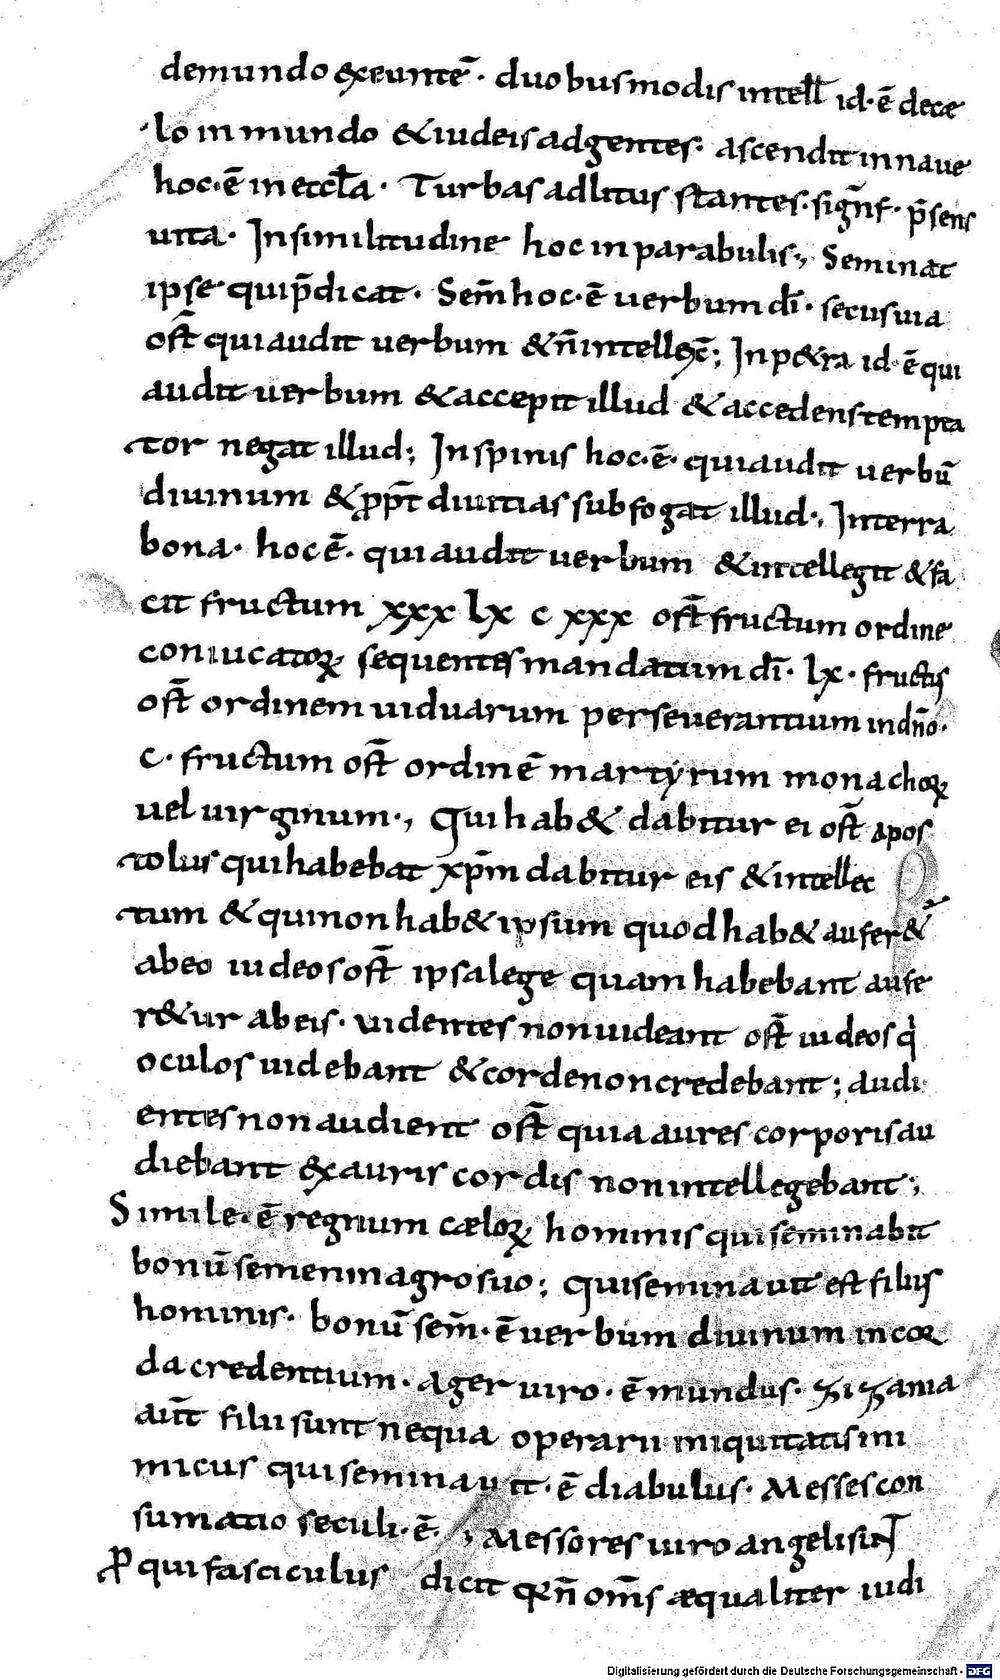 demundo &xeuntē· duobusmodis intell̄ id·ē decæ
lo inmundo &iudeisadgentes· ascendit innaue
hoc·ē in eccl̄a· Turbasadlitus stantes·sign̄f· p̄sens
uita· Insimilitudine hoc inparabulis·, Seminat
ipse quip̄dicat· Sem̄hoc·ē uerbum dī· secusuia
ost̄ quiaudit uerbum &n̄intellexc̄; Inp&ra id·ēqui
audit uerbum &accepit illud &accedenstempta
tor negat illud; Inspinis hoc·ē· quiaudit uerbū
diuinum &ꝓpt̄ diuitiassubfogat illud·, Interra
bona· hoc ē· quiaudit uerbum &intellegit &fa
cit fructum xxx lx c xxx ost̄ fructum ordine
coniucatoꝝ sequentesmandatum dī· lx· fructis
ost̄ ordinem uiduarum perseuerantium indn̄o·
c· fructum ost̄ ordinē martyrum monachoꝝ
uel uirginum·, Quihab& dabitur ei ost̄ apos
tolus quihabebat xp̄m dabitur eis &intellec
tum &quinonhab&ipsum quodhab& aufer&̄
abeo iudeosost̄ ipsalege quamhabebant aufe
r&ur abeis· uidentes nonuideant ost̄ iudeos q̇
oculos uidebant &cordenoncredebant; audi
entesnonaudient ost̄ quiaaures corporisau
diebant &xauris cordis nonintellegebant;
Simile·ē regnum cæloꝝ hominis quiseminabit
bonū semeninagrosuo; Quiseminauit est filius
hominis· bonū sem̄·ē uerbum diuinum incor
da credentium· ager uiro·ē mundus· zizania
aut̄ filii sunt nequa operarii iniquitatis ini
micus quiseminauit·ē diabulus· Messescon
sumatio seculi·ē·, Messores uiro angelisunt
ꝓ quifasciculus dicit qn̄ om̄s æqualiter iudi
Digitalisierung gefördert durch die Deutsche Forschungsgemeinschaft - DFG